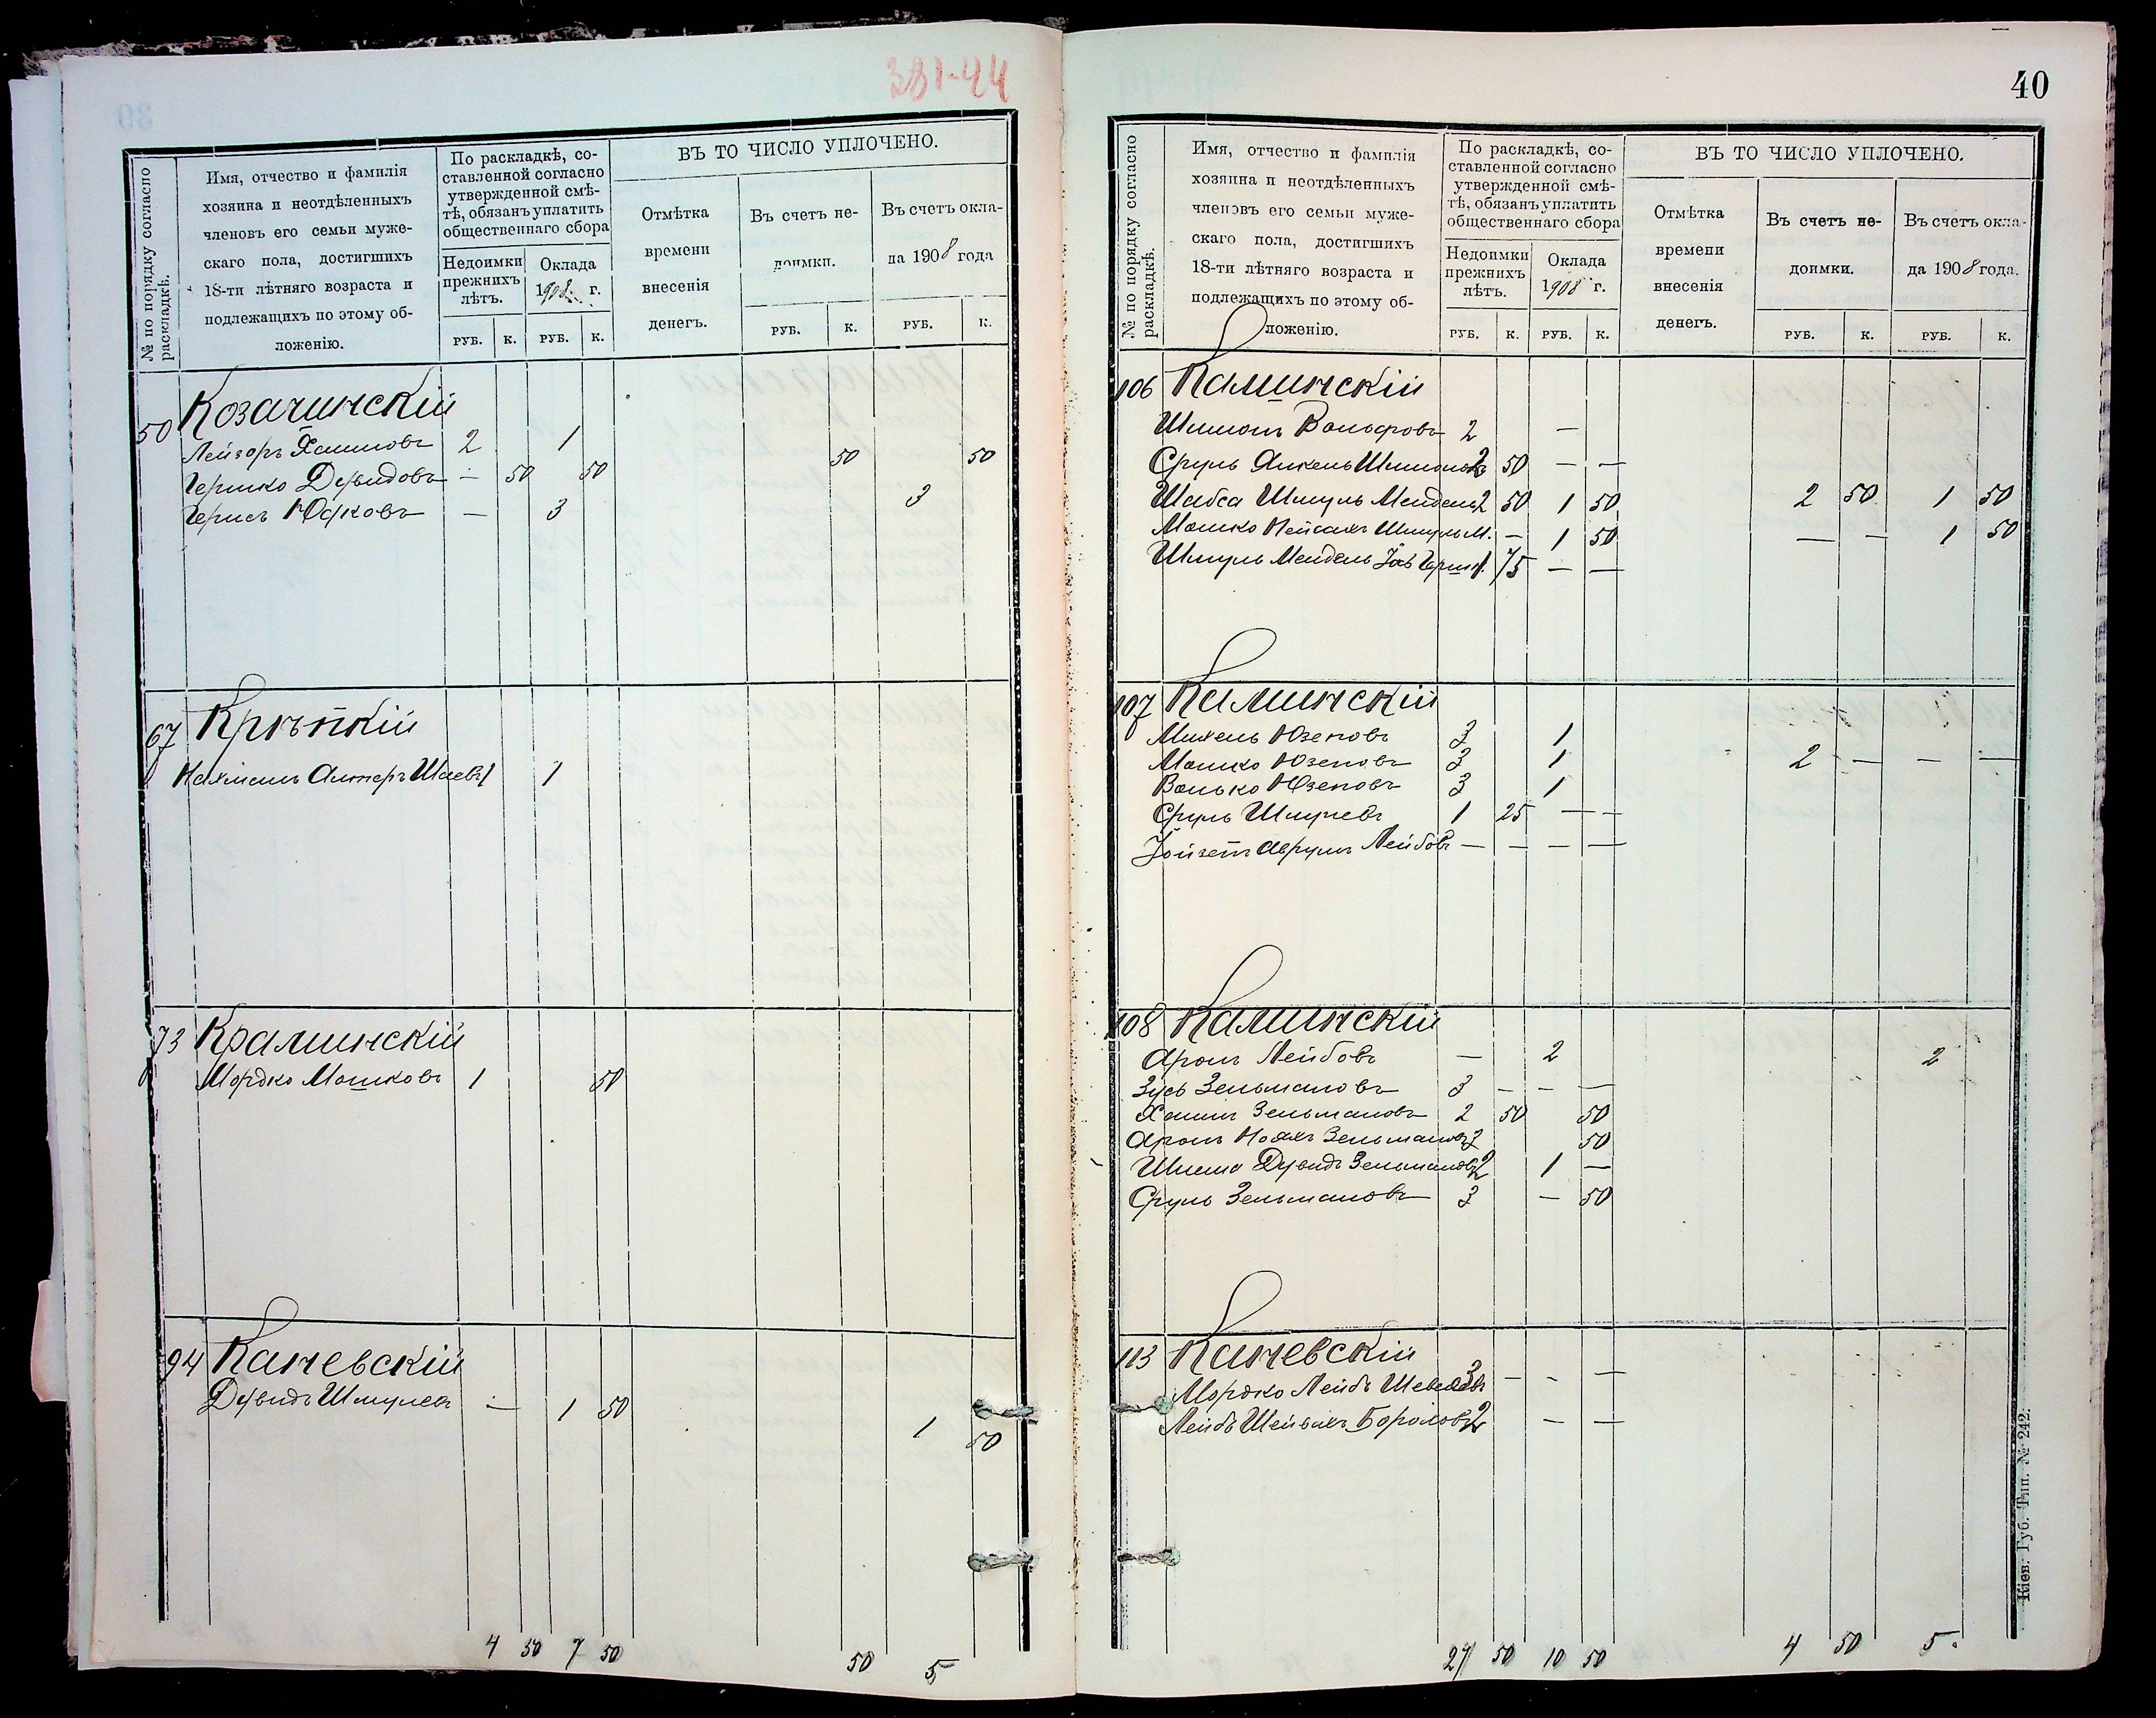 381-44
№ по порядку согласно раскладкѣ.
Имя, отчество и фамилія
хозяина и неотдѣленныхъ
членовъ его семьи муже-
скаго пола, достигшихъ
18-ти лѣтняго возраста и
подлежащихъ по этому об-
ложенію.
По раскладкѣ, со-
ставленной согласно
утвержденной смѣ-
тѣ, обязанъ уплатить
общественнаго сбора
Недоимки
прежнихъ
лѣтъ.
Оклада
1908 г.
РУБ. К. РУБ. К.
ВЪ ТО ЧИСЛО УПЛОЧЕНО.
Отмѣтка
времени
внесенія
денегъ.
Въ счетъ не-
доимки.
Въ счетъ окла-
да 1908 года
РУБ. К. РУБ. К.
50 Козачинскій
Лейзоръ Хаимовъ 2 1
Гершко Дувидовъ — 50 50 50 50
Гершъ Юдковъ — 3 3
67 Крѣпкій
Нахманъ Алтеръ Шаевъ 1 1
73 Краминскій
Мордко Мошковъ 1 50
94 Каневскій
Дувидъ Шмулевъ — 1 50 1 50
4 50 7 50 50 5
40
№ по порядку согласно раскладкѣ.
Имя, отчество и фамилія
хозяина и неотдѣленныхъ
членовъ его семьи муже-
скаго пола, достигшихъ
18-ти лѣтняго возраста и
подлежащихъ по этому об-
ложенію.
По раскладкѣ, со-
ставленной согласно
утвержденной смѣ-
тѣ, обязанъ уплатить
общественнаго сбора
Недоимки
прежнихъ
лѣтъ.
Оклада
1908 г.
РУБ. К. РУБ. К.
ВЪ ТО ЧИСЛО УПЛОЧЕНО.
Отмѣтка
времени
внесенія
денегъ.
Въ счетъ не-
доимки.
Въ счетъ окла-
да 1908 года.
РУБ. К. РУБ. К.
106 Калинскій
Шимонъ Вольфовъ 2 —
Сруль Анкель Шимоновъ 2 50 — —
Шабса Шмуль Мендель 2 50 1 50 2 50 1 50
Мошко Пейсахъ Шмуль М. — 1 50 — — 1 50
Шмуль Мендель 1 75 — —
107 Калинскій
Михель Юзеповъ 3 1
Мошко Юзеповъ 3 1 2 — — —
Волько Юзеповъ 3 1
Сруль Шмулевъ 1 25 — —
Іойзепъ Аврумъ Лейбовъ — — — —
108 Калинскій
Аронъ Лейбовъ — 2 2
Зусь Зельмановъ 3 — — —
Хаимъ Зельмановъ 2 50 50
Аронъ Ноахъ Зельмановъ 3 50
Шлема Дувидъ Зельмановъ 2 1 —
Сруль Зельмановъ 3 — 50
113 Каневскій
Мордко Лейбъ 3 — — —
Лейбъ Шейвахъ Бороховъ 2 — —
27 50 10 50 4 50 5.
Кіев. Губ. Тип. № 242.